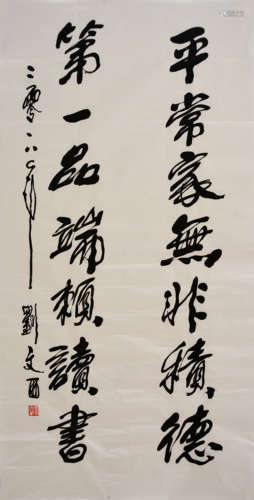 平常家無非積德
第一品端賴讀書
二零一八年 劉文西